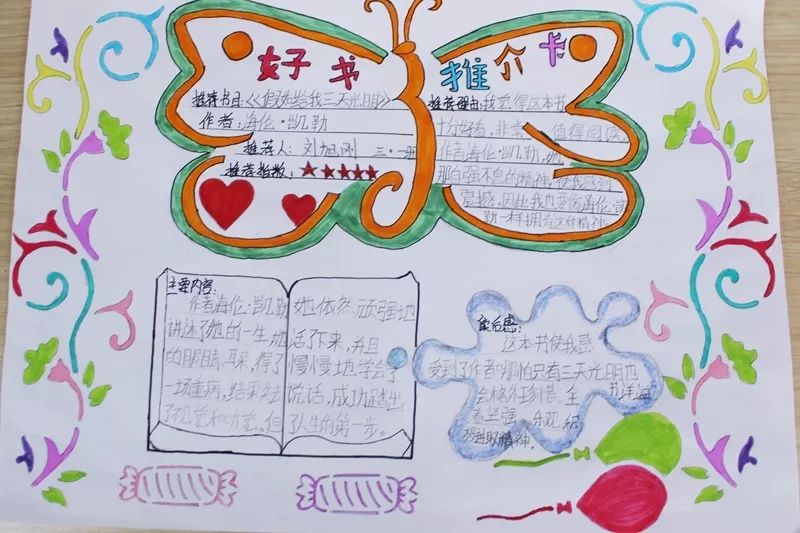 好书推介卡
推荐书目:《假如给我三天光明》
作者:海伦·凯勒
推荐人:刘旭刚 三·一班
推荐指数:★★★★★
推荐理由:我觉得这本书
十分好看,非常 值得阅读,
作者海伦·凯勒,她
那自强不息的精神,使我感到
震撼,因此我也要像海伦·凯
勒一样拥有这种精神。
主要内容:
作者海伦·凯勒
讲述了她的一生,她
的眼睛、耳朵,得了
一场重病,结果失去
了视觉和听觉。但
她依然 顽强地
活了下来,并且
慢慢地学会了
说话,成功踏出
了人生的第一步。
读后感:
这本书使我感
受到了作者哪怕只有三天光明也
会格外珍惜。全 书洋溢
着坚强、乐观、积
极进取精神。